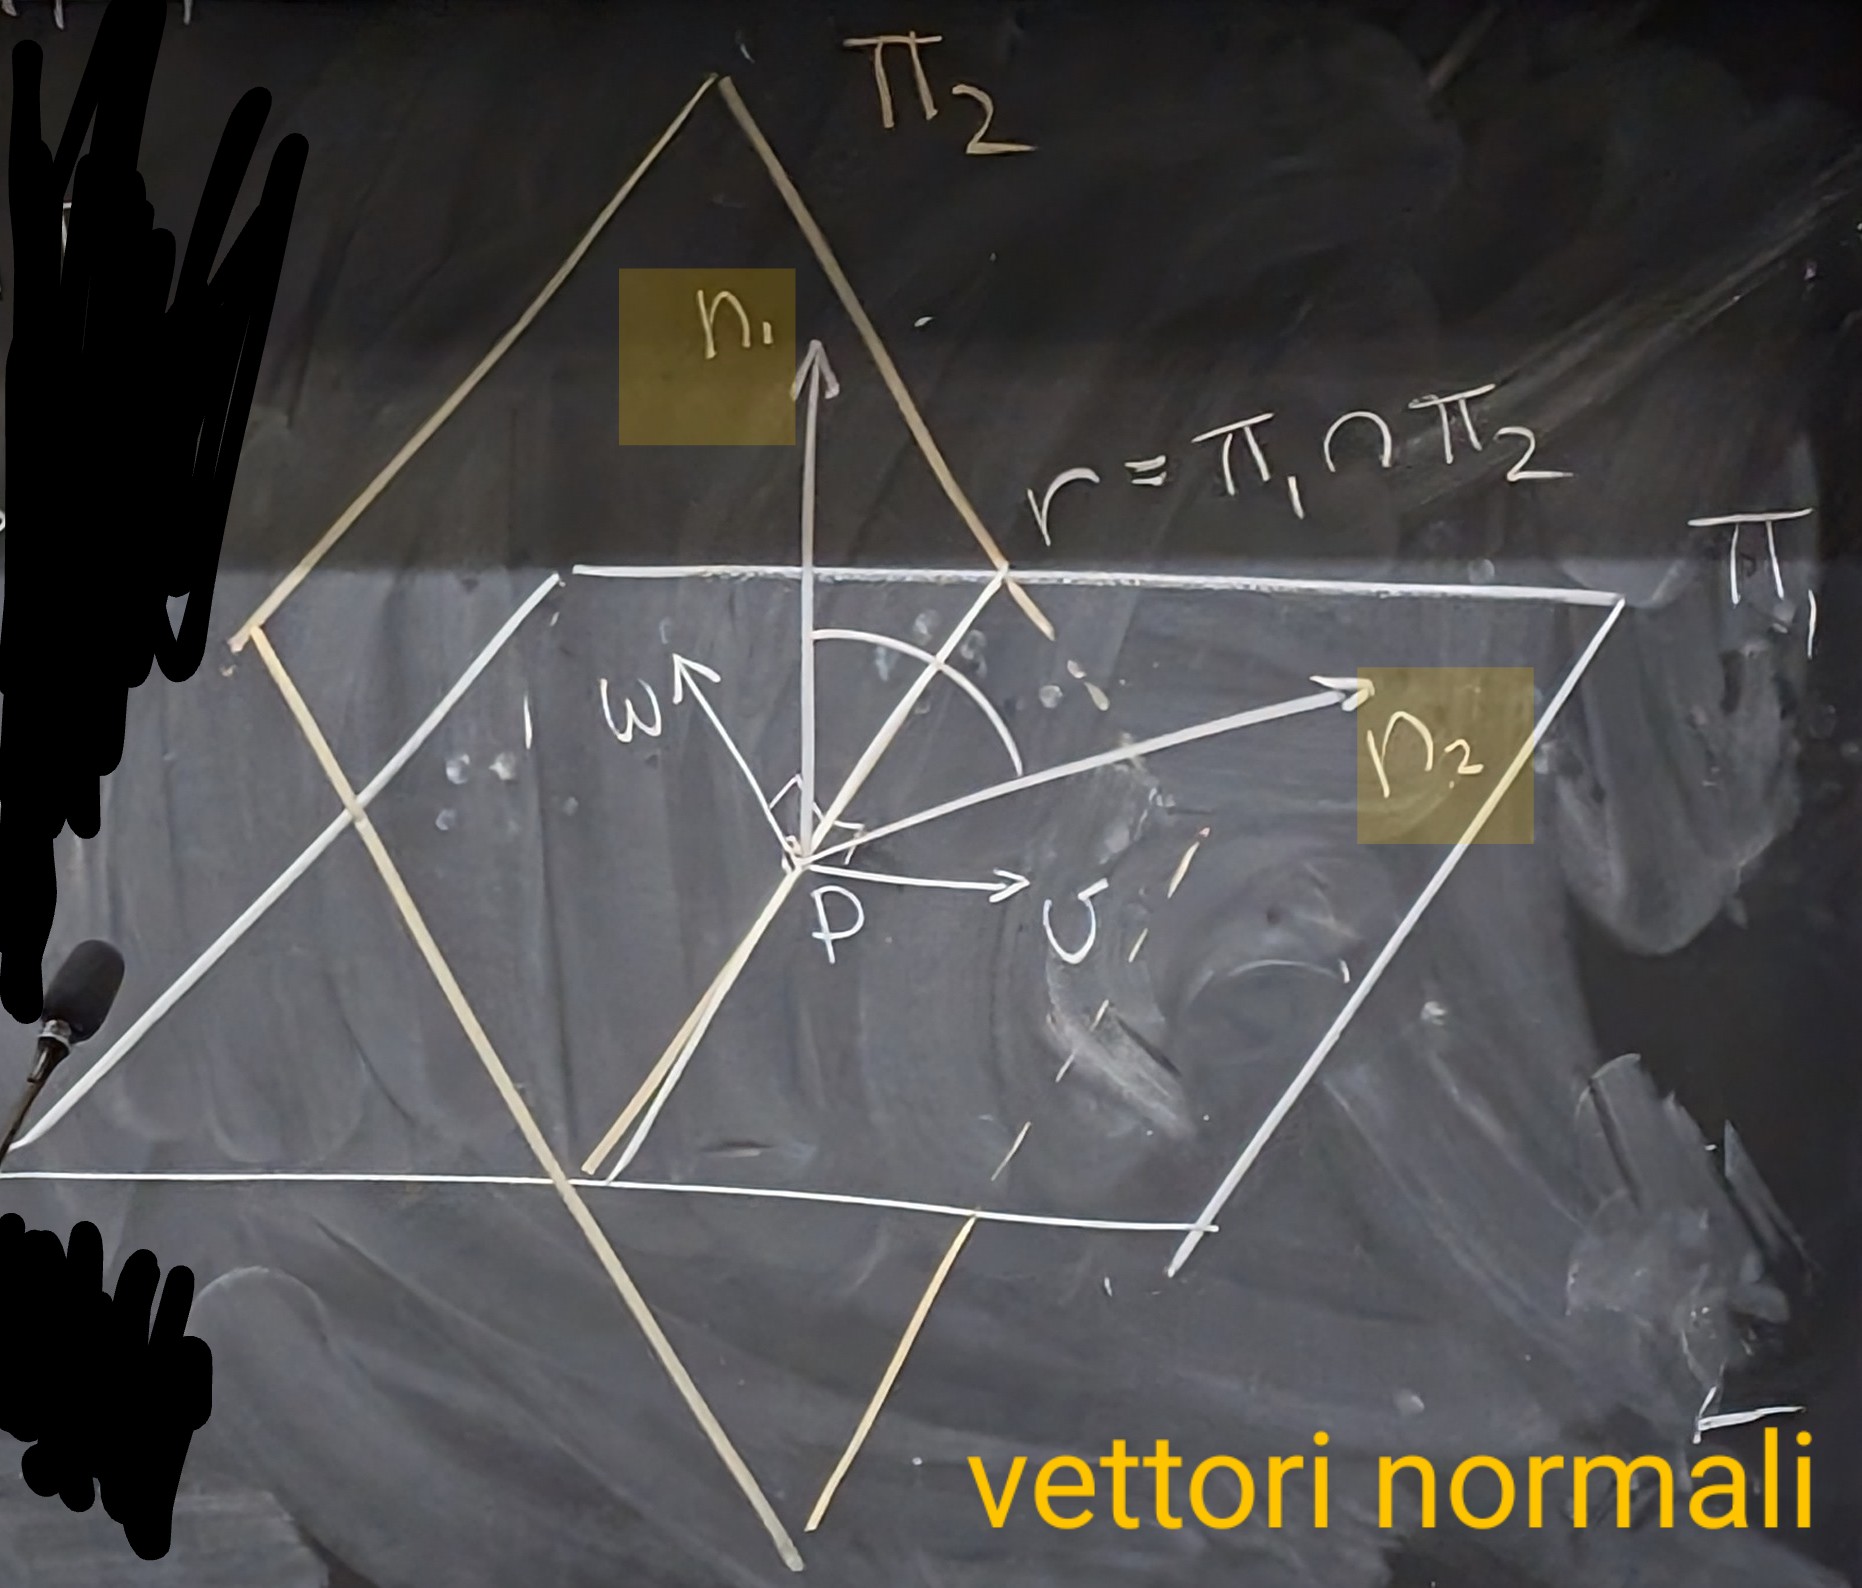 π₂
n₁
r = π₁ ∩ π₂
π₁
w
n₂
P
v
vettori normali